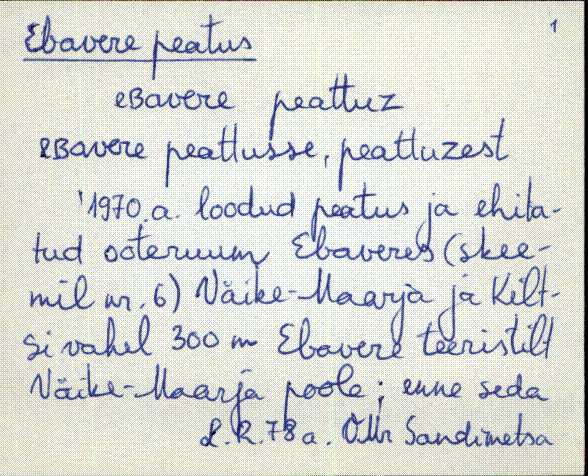 1
Ebavere peatus
eBavere peattuz
eBavere peattusse, peattuzest
'1970.a. loodud peatus ja ehita-
tud ooteruum Ebaveres (skee-
mil nr. 6) Väike-Maarja ja Kilt-
si vahel 300 m Ebavere teeristilt
Väike-Maarja poole; enne seda
L.R.78 a. O. Sandimetsa